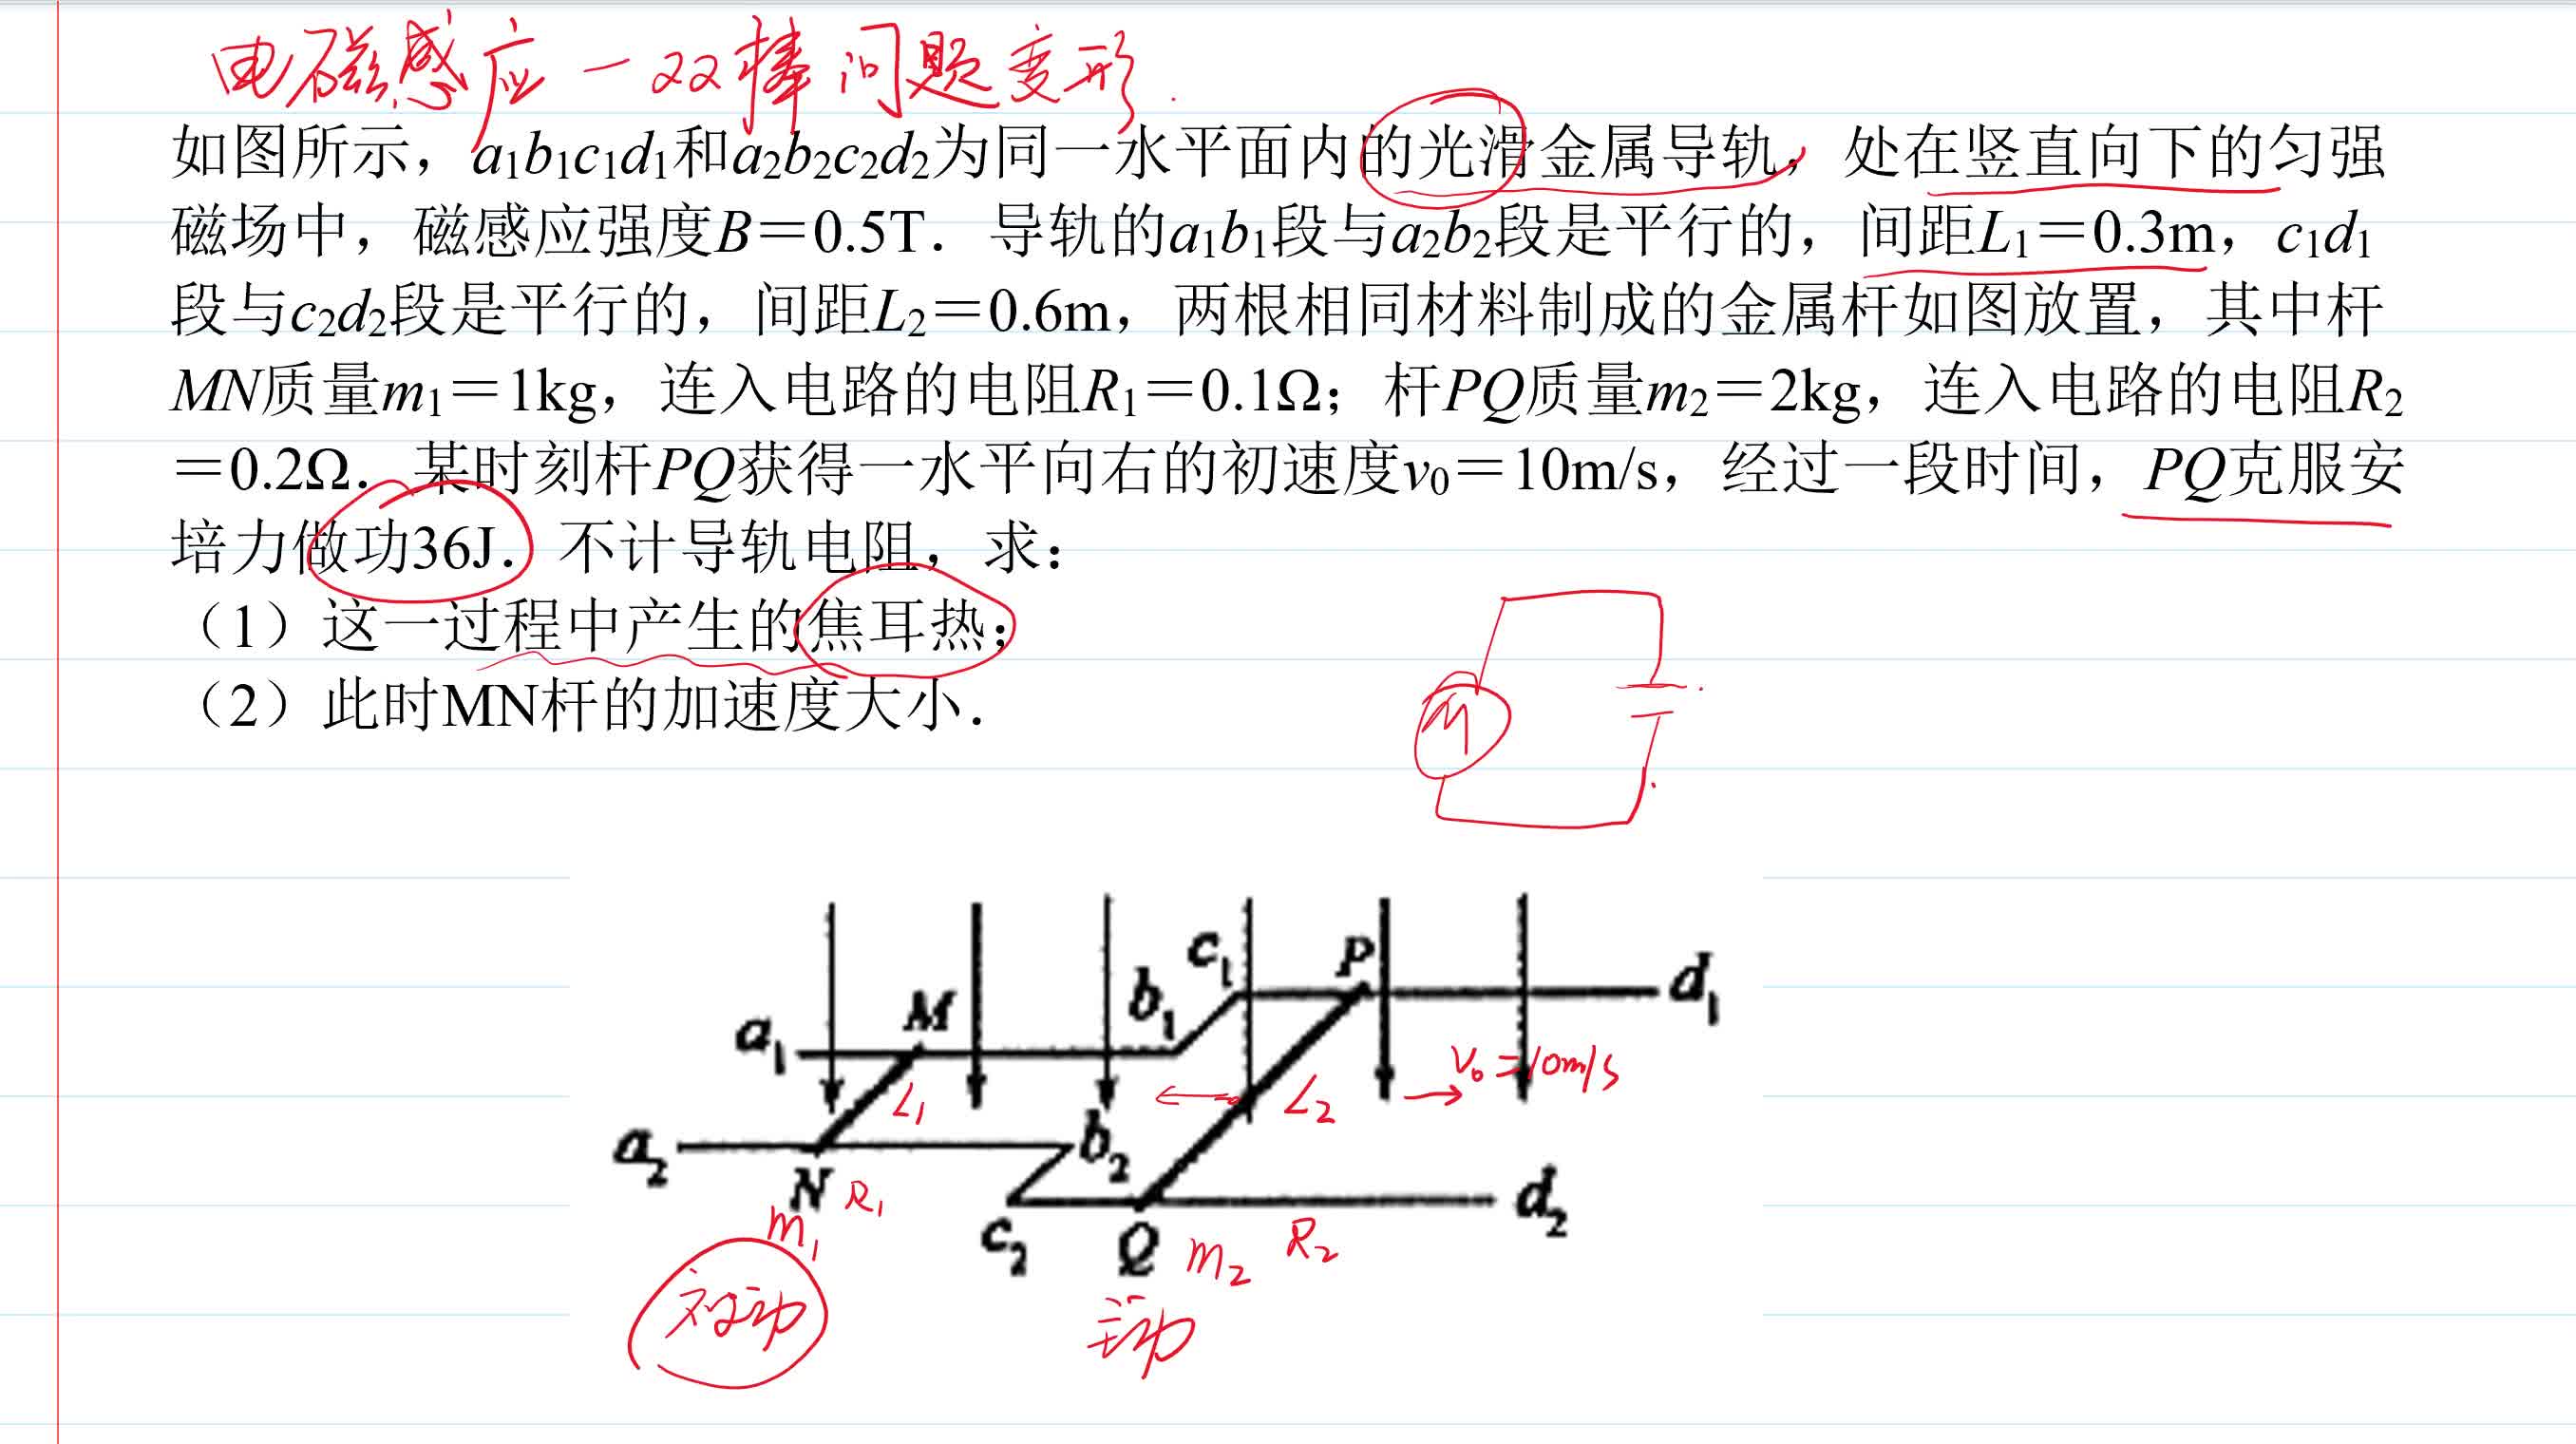 电磁感应-双棒问题变形.
如图所示，a₁b₁c₁d₁和a₂b₂c₂d₂为同一水平面内的光滑金属导轨，处在竖直向下的匀强
磁场中，磁感应强度B＝0.5T．导轨的a₁b₁段与a₂b₂段是平行的，间距L₁＝0.3m，c₁d₁
段与c₂d₂段是平行的，间距L₂＝0.6m，两根相同材料制成的金属杆如图放置，其中杆
MN质量m₁＝1kg，连入电路的电阻R₁＝0.1Ω；杆PQ质量m₂＝2kg，连入电路的电阻R₂
＝0.2Ω．某时刻杆PQ获得一水平向右的初速度v₀＝10m/s，经过一段时间，PQ克服安
培力做功36J．不计导轨电阻，求：
（1）这一过程中产生的焦耳热；
（2）此时MN杆的加速度大小．
M
c₁
P
d₁
b₁
M
a₁
V₀=10m/s
L₁
L₂
a₂
b₂
N
R₁
d₂
m₁
c₂
Q
m₂
R₂
被动
主动